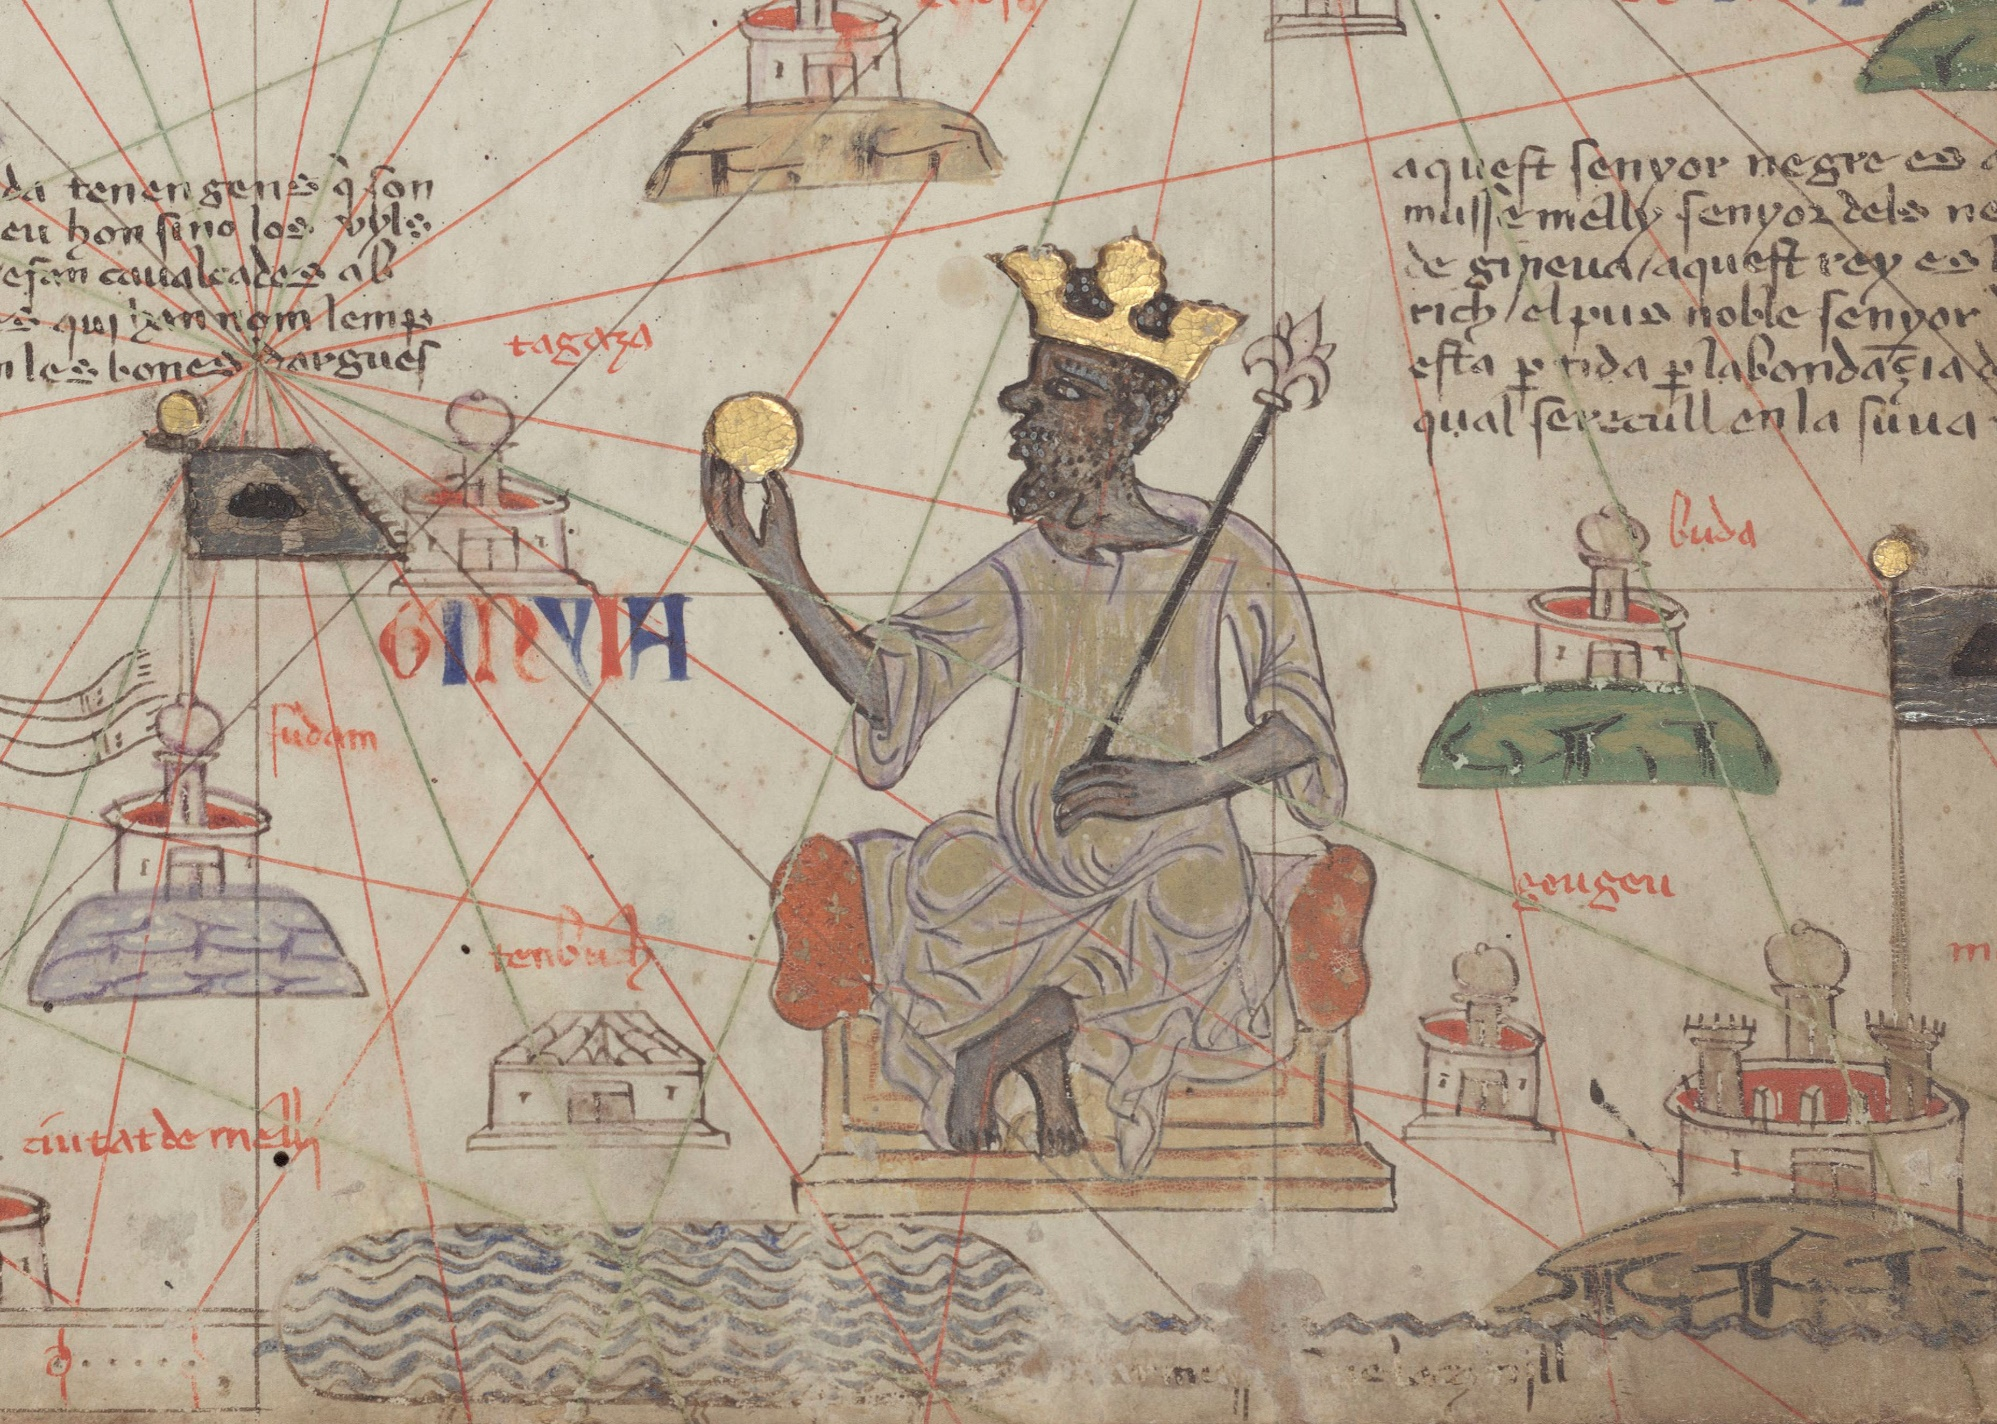 da tenen gens q̄ son
eu hon sino los vyls
caualcades ab
qui han nom lemp
les bones dargues
tagaza
aquest senyor negre es
musse melly senyor dels ne
de gineua / aquest rey es l
rich / el pus noble senyor
esta ꝑtida ꝑ labondaçia d
qual se recull en la suua
buda
GINYIA
sudam
geugeu
tenbuch
m
ciutat de melly